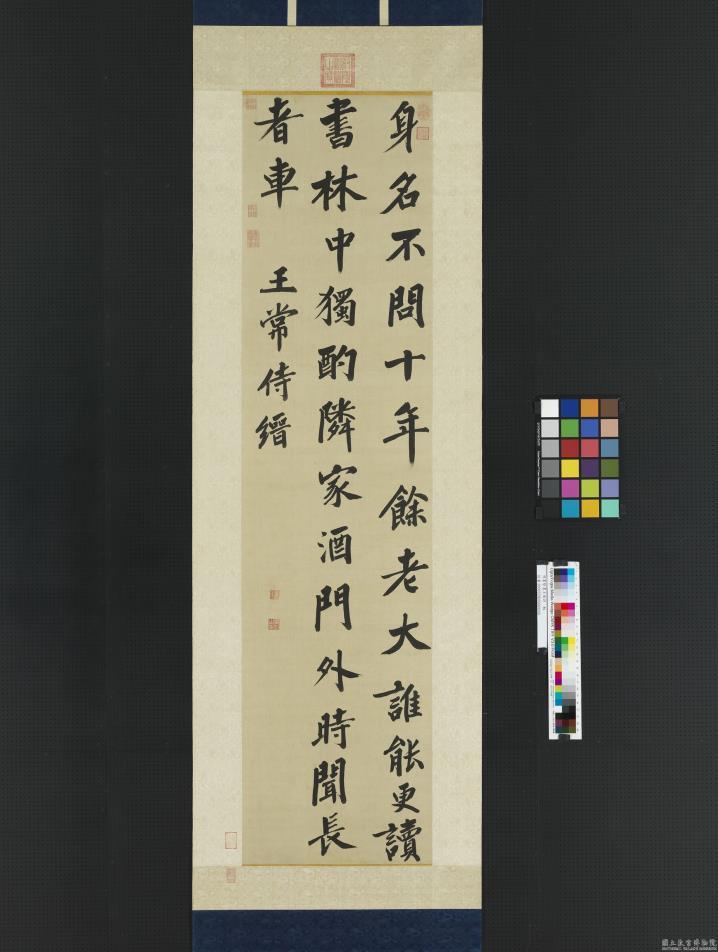 身名不問十年餘老大誰能更讀
書林中獨酌隣家酒門外時聞長
者車
王常侍縉
國立故宮博物院